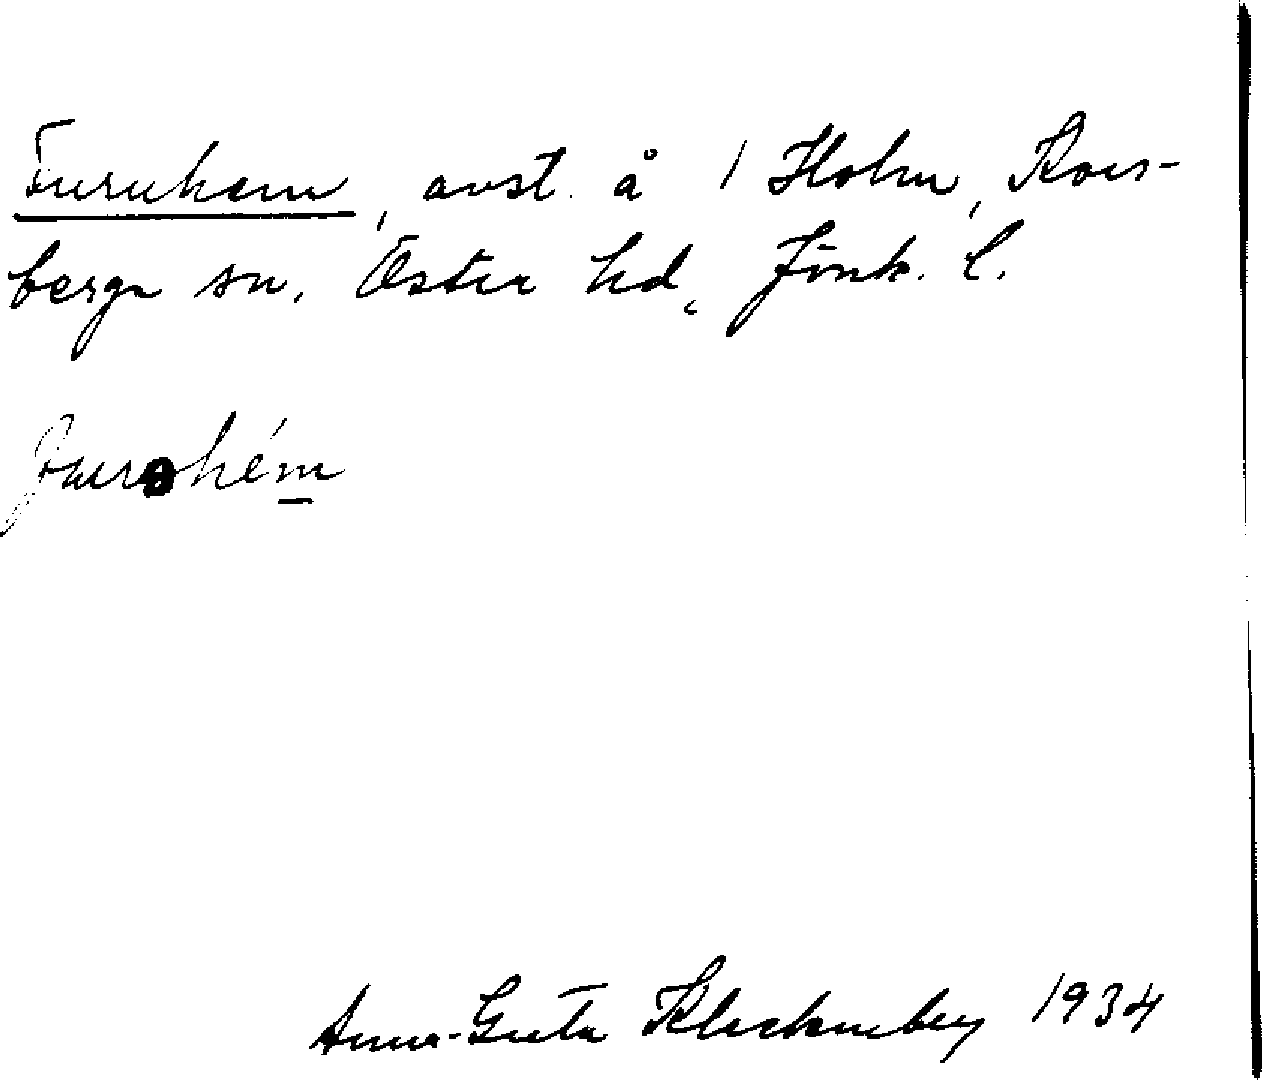 Furuhem, avst. å 1 Holm, Kors-
berga sn. Östra hd, Jönk. l.
furohém
Anna-Greta Kleckenberg 1934